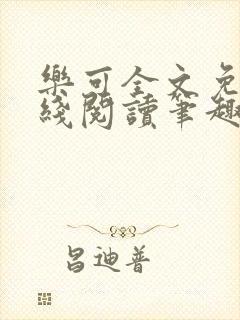 樂可全文免
綫閱讀筆趣
昌迪普